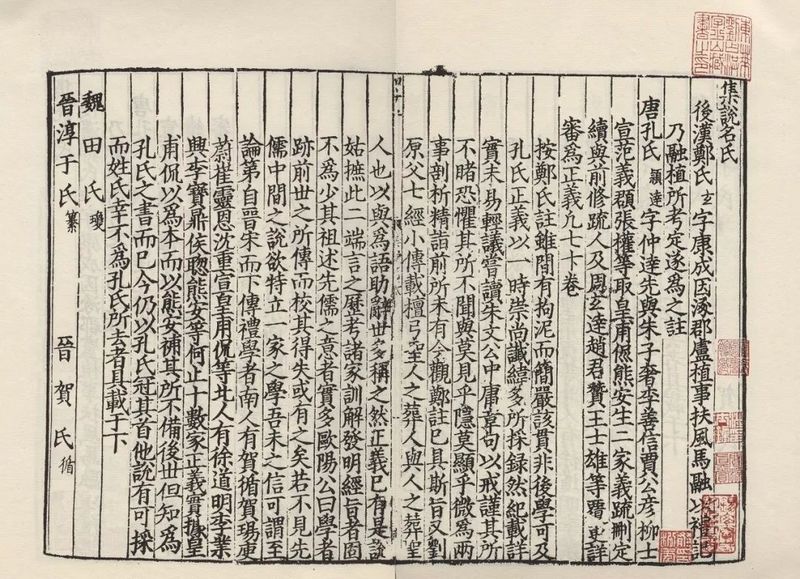 集說名氏
後漢鄭氏玄字康成因涿郡盧植事扶風馬融以禮記
乃融植所考定遂爲之註
唐孔氏穎達字仲達先與朱子奢李善信賈公彥柳士
宣范義頵張權等取皇甫侃熊安生二家義疏刪定
續與前修疏人及周玄達趙君贊王士雄等覆更詳
審爲正義凡七十卷
按鄭氏註雖間有拘泥而簡嚴該貫非後學可及
孔氏正義以一時崇尚讖緯多所採録然紀載詳
實未易輕議嘗讀朱文公中庸章句以戒謹其所
不睹恐懼其所不聞與莫見乎隱莫顯乎微爲兩
事剖析精詣前所未有今觀鄭註已具斯旨又劉
原父七經小傳載檀弓聖人之葬人與人之葬聖
人也以與爲語助辭世多稱之然正義已有是說
姑摭此二端言之歷考諸家訓解發明經旨者固
不爲少其祖述先儒之意者實多歐陽公曰學者
跡前世之所傳而校其得失或有之矣若不見先
儒中間之說欲特立一家之學吾未之信可謂至
論第自晉宋而下傳禮學者南人有賀循賀瑒庾
蔚崔靈恩沈重宣皇甫侃等北人有徐道明李業
興李寶鼎侯聰熊安等何止十數家正義實據皇
甫侃以爲本而以熊安補其所不備後世但知爲
孔氏之書而已今仍以孔氏冠其首他說有可採
而姓氏幸不爲孔氏所去者具載于下
魏田氏瓊
晉淳于氏纂 晉賀氏循